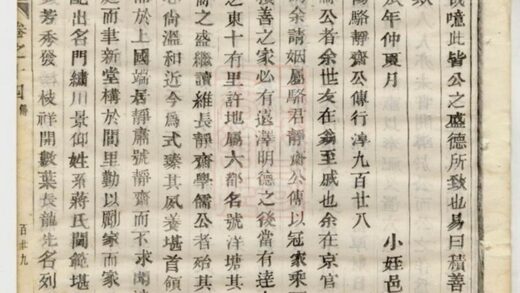 噫此皆公之盛德所致也易曰積善
辰年仲夏月 小姪邑
陽駱靜齋公傳行淳九百廿八
公者余世友在翁至戚也余在京官
余請姻屬駱君靜齋公傳以冠家乘
積善之家必有遺澤明德之後當有達
之東十有里許地屬六都名號洋塘其
喬之盛繼讀維長靜齋學儒公者殆其
尚溫和近今爲式臻其夙養堪首領
需於上國端居靜肅號靜齋而不求聞
庭而聿新堂構於閭里勤以勵家而家
配出名門繡川景仰姓系蔣氏閫範堪
芳秀發三枝祥開數葉長龍先名列
卷之一
百廿九